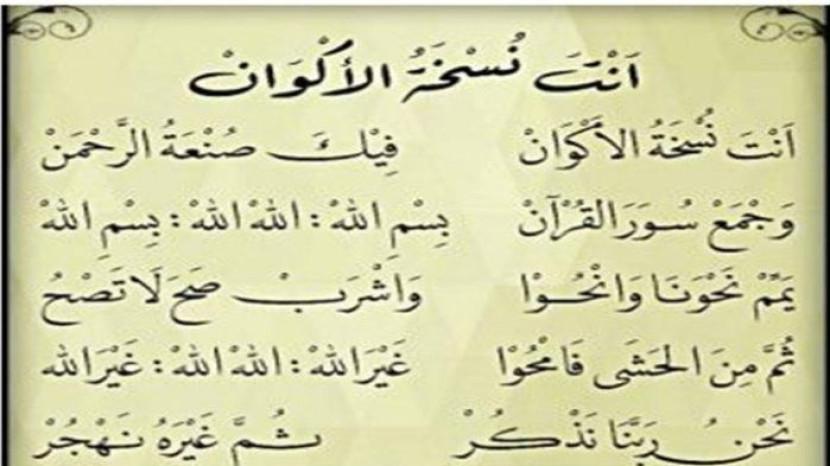 اَنْتَ نُسْخَةُ الأَكْوَانْ
اَنْتَ نُسْخَةُ الأَكْوَانْ فِيْكَ صُنْعَةُ الرَّحْمَنْ
وَجْمَعْ سُوَرَ القُرْآنْ بِسْمِ اللهْ : اللهْ اللهْ : بِسْمِ اللهْ
يَمِّمْ نَحْوَنَا وَانْحُوْا وَاشْرَبْ صَحَ لَا تَصْحُ
ثُمَّ مِنَ الحَشَى فَامْحُوْا غَيْرَ اللهْ : اللهْ اللهْ : غَيْرَ الله
نَحْنُ رَبَّنَا نَذْكُرْ ثُمَّ غَيْرَهُ نَهْجُرْ